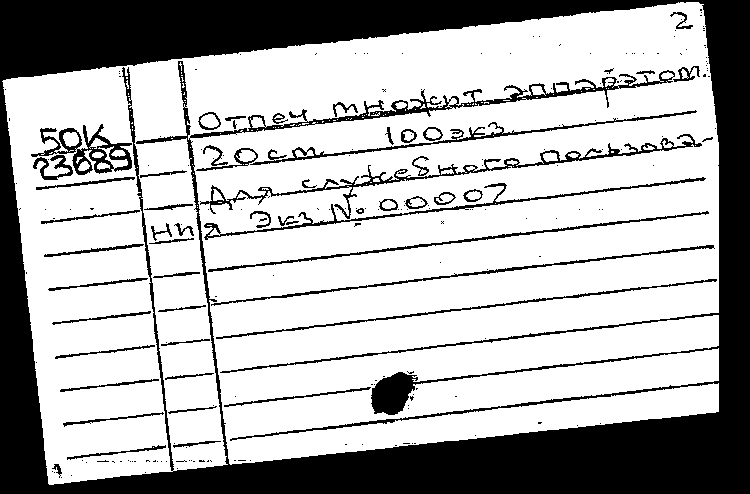 2
50К
23689
Отпеч. множит аппаратом.
20см. 100экз.
Для служебного пользова-
ния Экз. № 00007